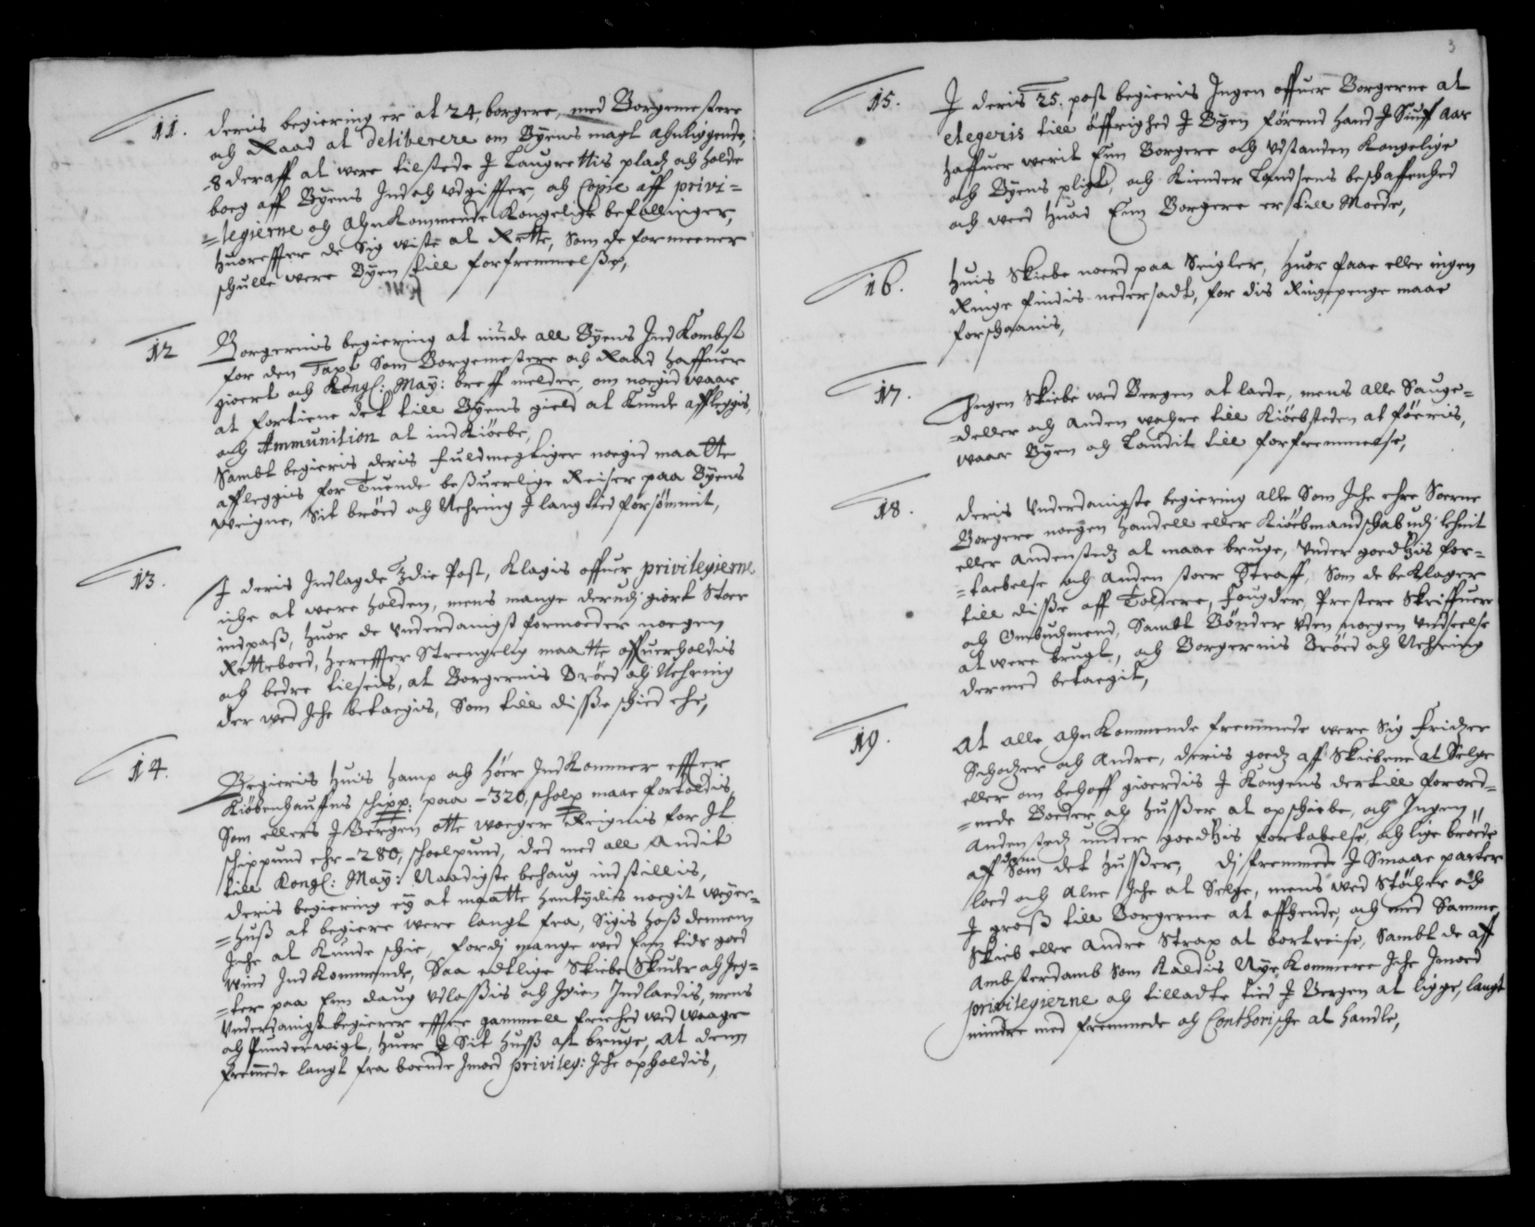 11. Deris begiering er at 24, borgere, med Borgemestere
och Raad at Deliberere om Byens magt Ahnliggende,
8 deraff at were tilstede J Laugrettis platz och holde
boeg aff Byens Ind och Udgiffter, och Copie aff privi=
=legierne och Ahnkommende Kongelige befallinger,
Huoreffter de Sig wiste at Rette, Som de formeener
schulle were Byen till forfremmelsse,
12 Borgernis begiering at niude all Byens IndKombst
for den Taxt Som Borgemestere och Raad Haffuer
giort och Kongl: May: breff melder, om noegid waar
at fortiene det till Byens gield at Kunde affleggis,
och Ammunition at indKiøebe,
Sambt begieris deris fuldmegtiger noegid maatte
affleggis for Tuende besuerlige Reiser paa Byens
weigne, Sit brøed och Nehring J lang tied forsømmit,
13. J deris Indlagde 3die Post, Klagis offuer privilegierne
iche at were holden, mens mange derudj giort Stoer
indpass, Huor de Underdanigst formoeder noegen
Retteboed, Hereffter Strengelig maatte offuerholdis
och bedre tilseeis, at Borgernis Brøed och Nehring
der wed Iche betaegis, Som till disse schied ehr,
14. Begieris Huis Hamp och Høer IndKommer effter
Kiøbenhauffns schipp: paa -320, scholp maae fortoldis,
Som ellers J Bergen otte woeger Reignis for It
schippund ehr -280, schoelpund, ded med all Andit
till Kongl: May: Naadigste behaug indstillis,
Deris begiering ey at maatte Hentydis noegit weyer=
=Huss at begiere were langt fra, Sigis Hoss dennem
Iche at Kunde schie, fordj mange wed Een tids goed
wind IndKommende, Saa adtlige Skiebe Skuder och Jeg=
=ter paa Een daug Udlossis och Igien Indlaedis, mens
Underdanigst begierer effter gammell friehed wed Waage
och Punderwigt, Huer J Sit Huss at bruge, at denn
fremmede langt fra boende Imoed privileg: Iche opholdis,
3
15. J deris 25. post begieris Ingen offuer Borgerne at
elegeris till øffrighed J Byen førend Hand J Siuff Aar
Haffuer werit Een Borgere och Udstanden Kongelige
och Byens pligt, och Kiender Landsens beschaffenhed
och weed Huad Een Borgere er till Moede,
16. Huis Skiebe noerd paa Seigler, Huor faae eller ingen
Ringe findis nedersadt, for dis Ringepenge maae
forschaanis,
17. Ingen Skiebe wed Bergen at laede, mens alle Sauge=
=deller och Anden wahre till Kiøebsteden at føeris,
waar Byen och Landit till forfremmelse,
18. Deris Underdanigste begiering alle Som Iche ehre Soerne
Borgere noegen Handell eller Kiøebmandschab udj Lehnit
eller Andenstedz at maae bruge, Under goedtzis for=
=taebelse och Anden stoer Straff, Som de beKlager
till disse aff Toldere, fougder, Prestere Skriffuere
och Ombudzmend, Sambt Bønder Uden noegen Undseelse
at were brugt, och Borgernis Brøed och Nehring
dermed betaegit,
19. At alle Ahnkommende fremmede were Sig Hidzer
Schotzer och Andre, deris goedz aff Skiebene at Selge
eller om behoff gioerdis J Kongens dertill forord=
=nede Boeder och Husser at opschiebe, och Ingen
Andenstedz under goedtzis fortabelse, och lige broede
aff Som det Husser, dj fremmede J Smaae parter
loed och Alne Iche at Selge, mens wed Støcher och
J gross till Borgerne at affhende, och med Samme
Skieb eller Andre Strax at bortreise, Sambt de aff
Ambsterdamb Som Kaldis Nye Kommere Iche Imoed
privilegierne och tilladte tied J Bergen at ligge, langt
mindre med fremmede och Conthorische at Handle,